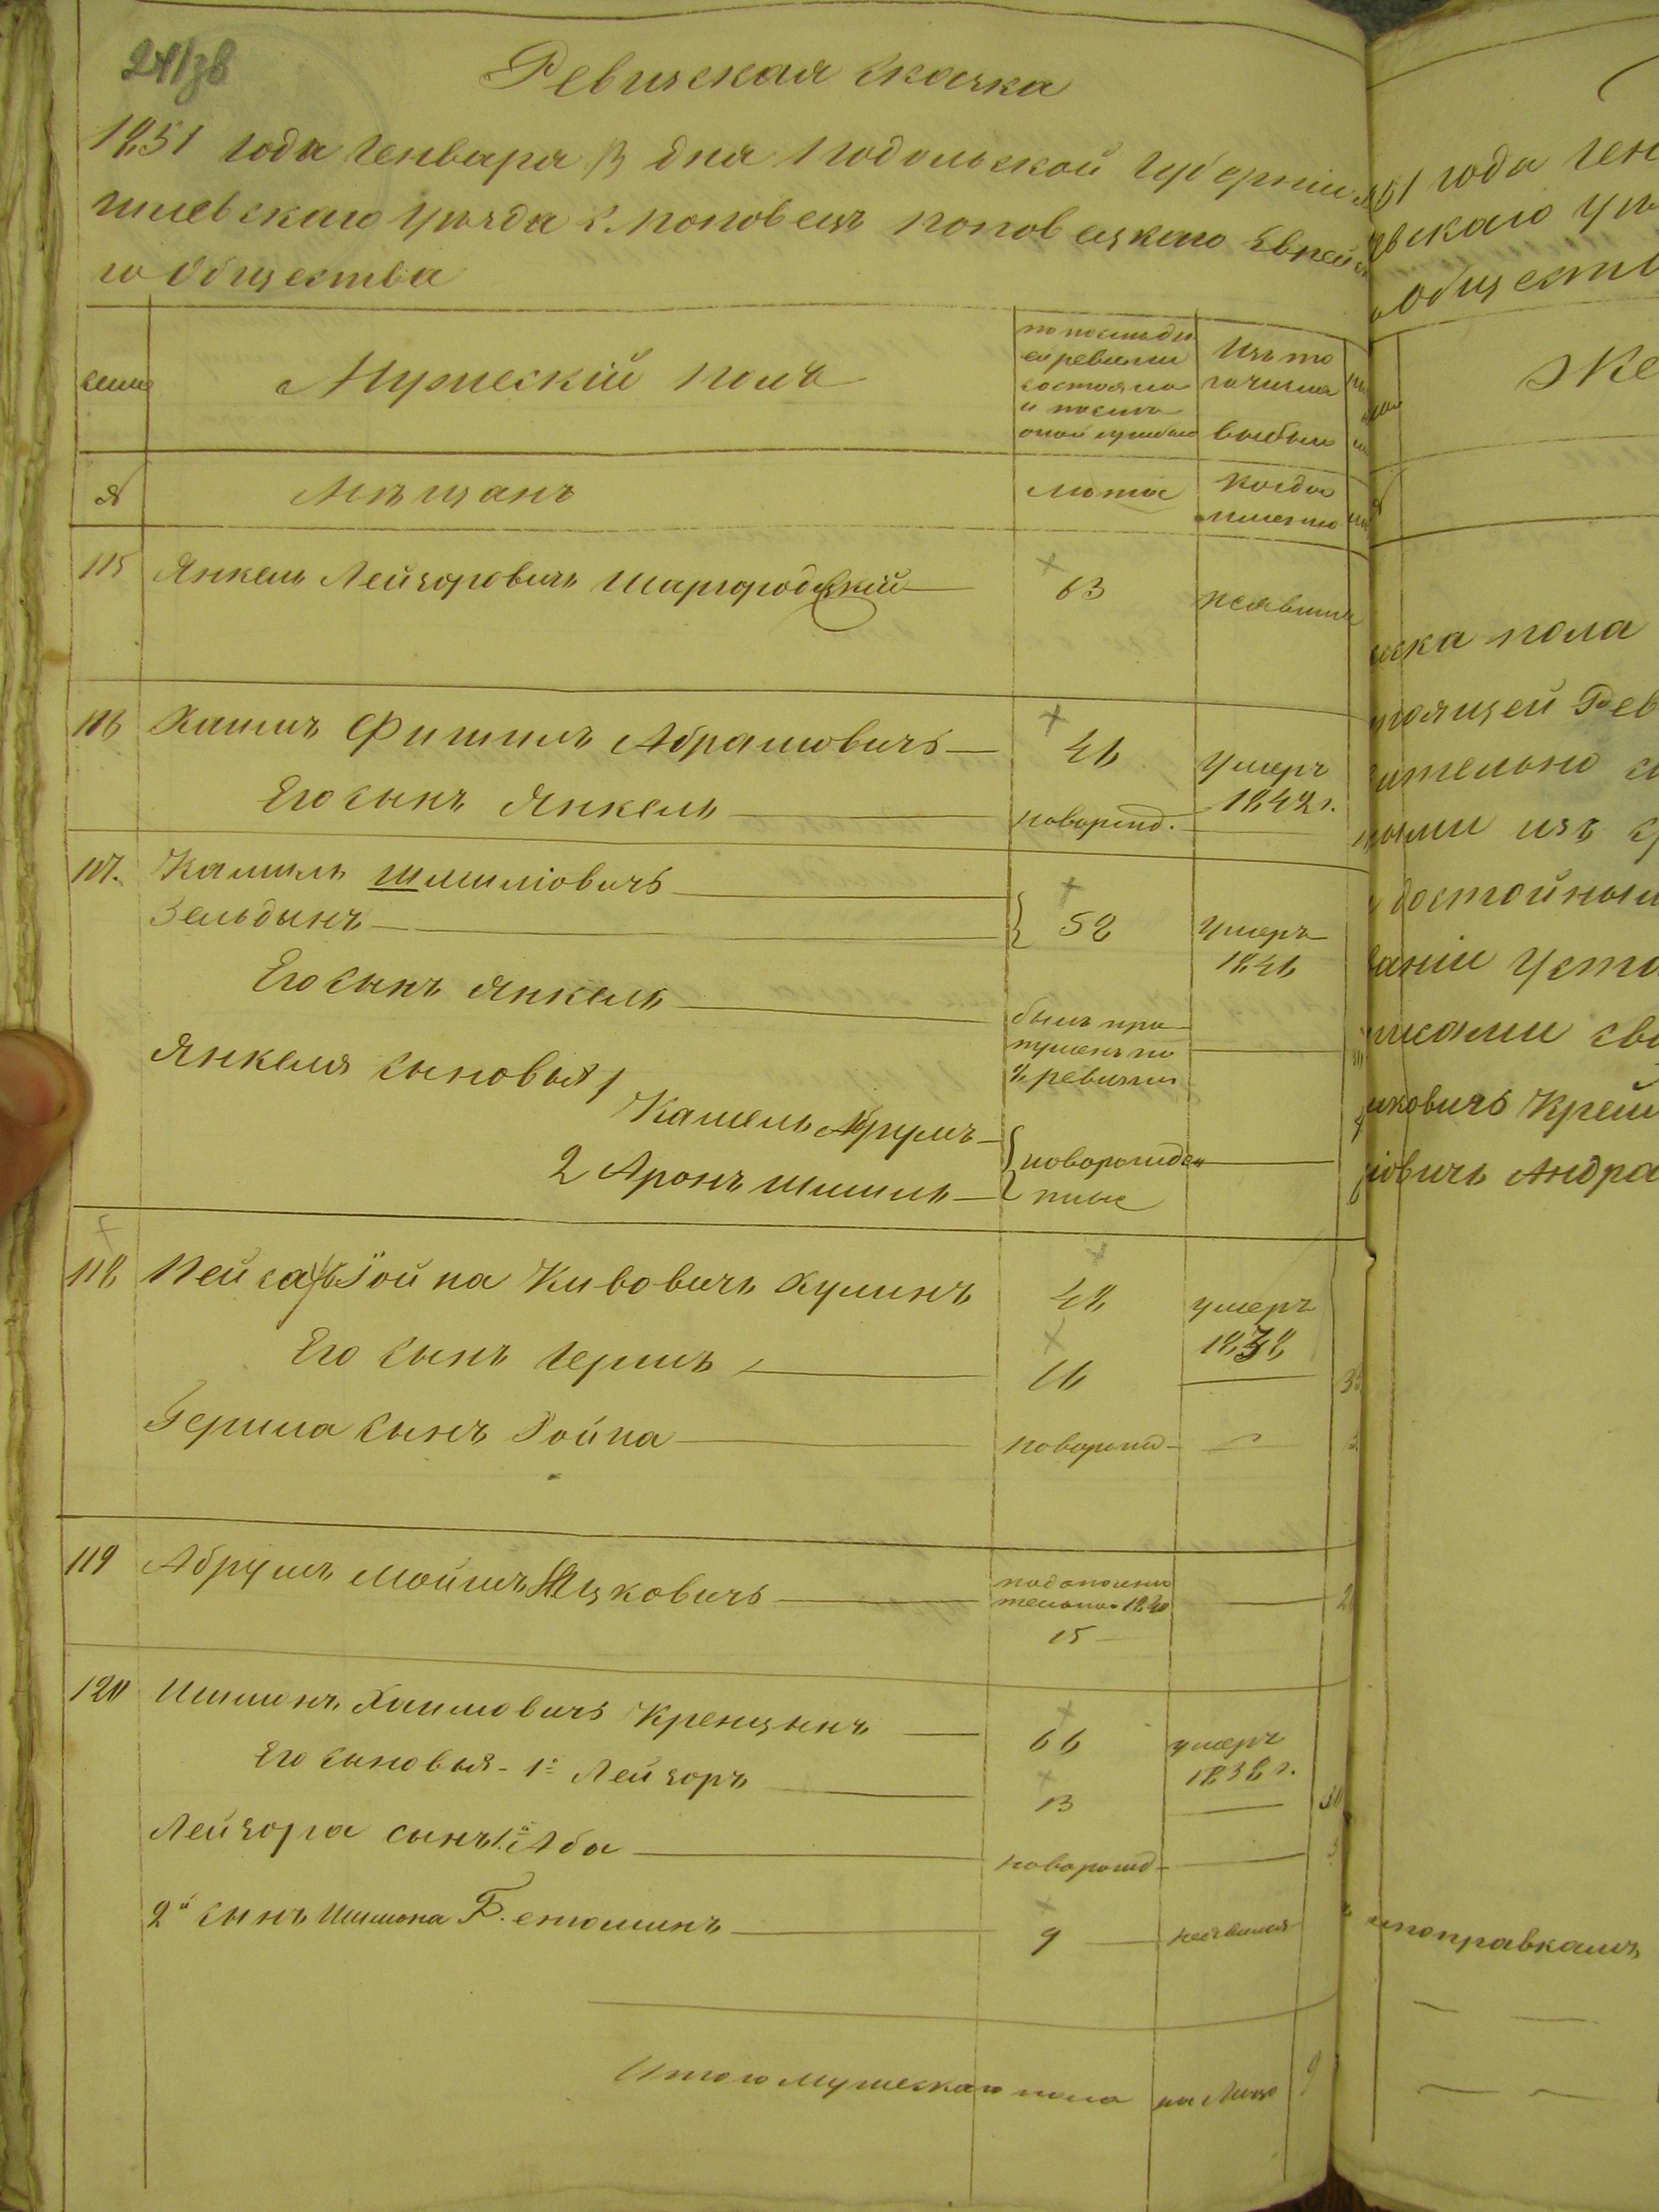 241зв
Ревизская сказка
1851 года Генваря 13 дня Подольской Губерніи
шлевскаго Уѣзда С. Поповецъ Поповецкаго Еврей
го Общества
семи
Мужескій полъ
по послѣдн
ей ревизіи
состояло
и после
оной прибыло
Изъ то
го числа
выбыло
я
Мѣщанъ
лѣта
Когда
именно
115 Янкель Лейзоровичъ Шаргородскій 63 неявился
116 Хаимъ Фишиль Абрамовичъ 46 умеръ
1842 г.
Его сынъ Янкель новорожд.
117. Камиль Шмиліовичъ
Зельдынъ 52 умеръ
1846
Его сынъ Янкель
былъ про
пущенъ по
8 ревизіи
Янкеля сыновья 1
Камель Абрумъ
2 Аронъ Шмиль
новорожден
ные
118 Пейсах Іойна Кивовичъ Кулинъ 48 умеръ
1838
Его сынъ Гершъ 16
Герша сынъ Іойна новорожд
119 Абрумъ Мойшъ Ицковичъ
по дополни
тельно 1840
15
120 Шимонъ Хаимовичъ Кренцынъ 66 умеръ
1838 г.
Его сыновья - 1й Лейзоръ 13 30
Лейзора сынъ 1й Аба новорожд
2й сынъ Шимона Беніоминъ 9 неявился
Итого мужескаго пола на лицо 9
851 года Ген
евскаго Уѣ
Обществ
Же
ска пола
тоящей Рев
ительно
ными изъ
достойным
ваніи Уста
писами
ковичъ Крей
іовичъ Андра
поправкамъ